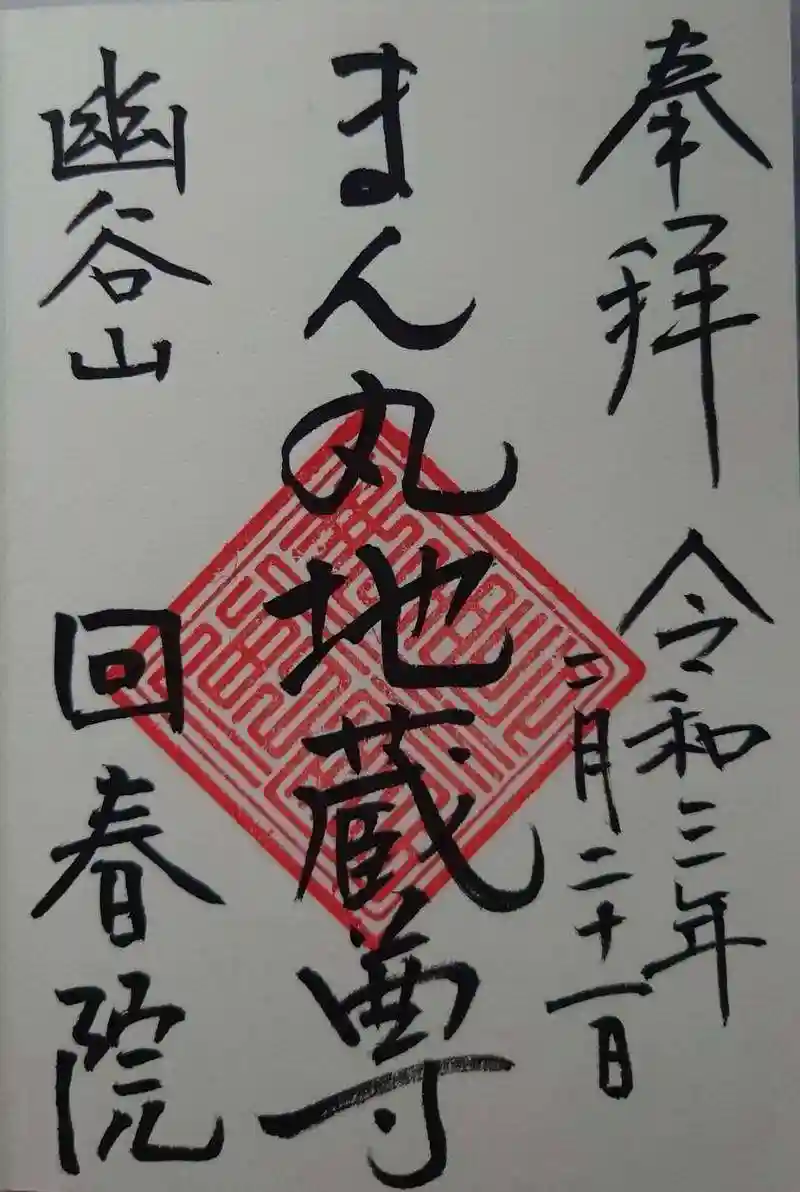 奉拝 令和三年
二月二十一日
まん丸地蔵尊
幽谷山 回春院